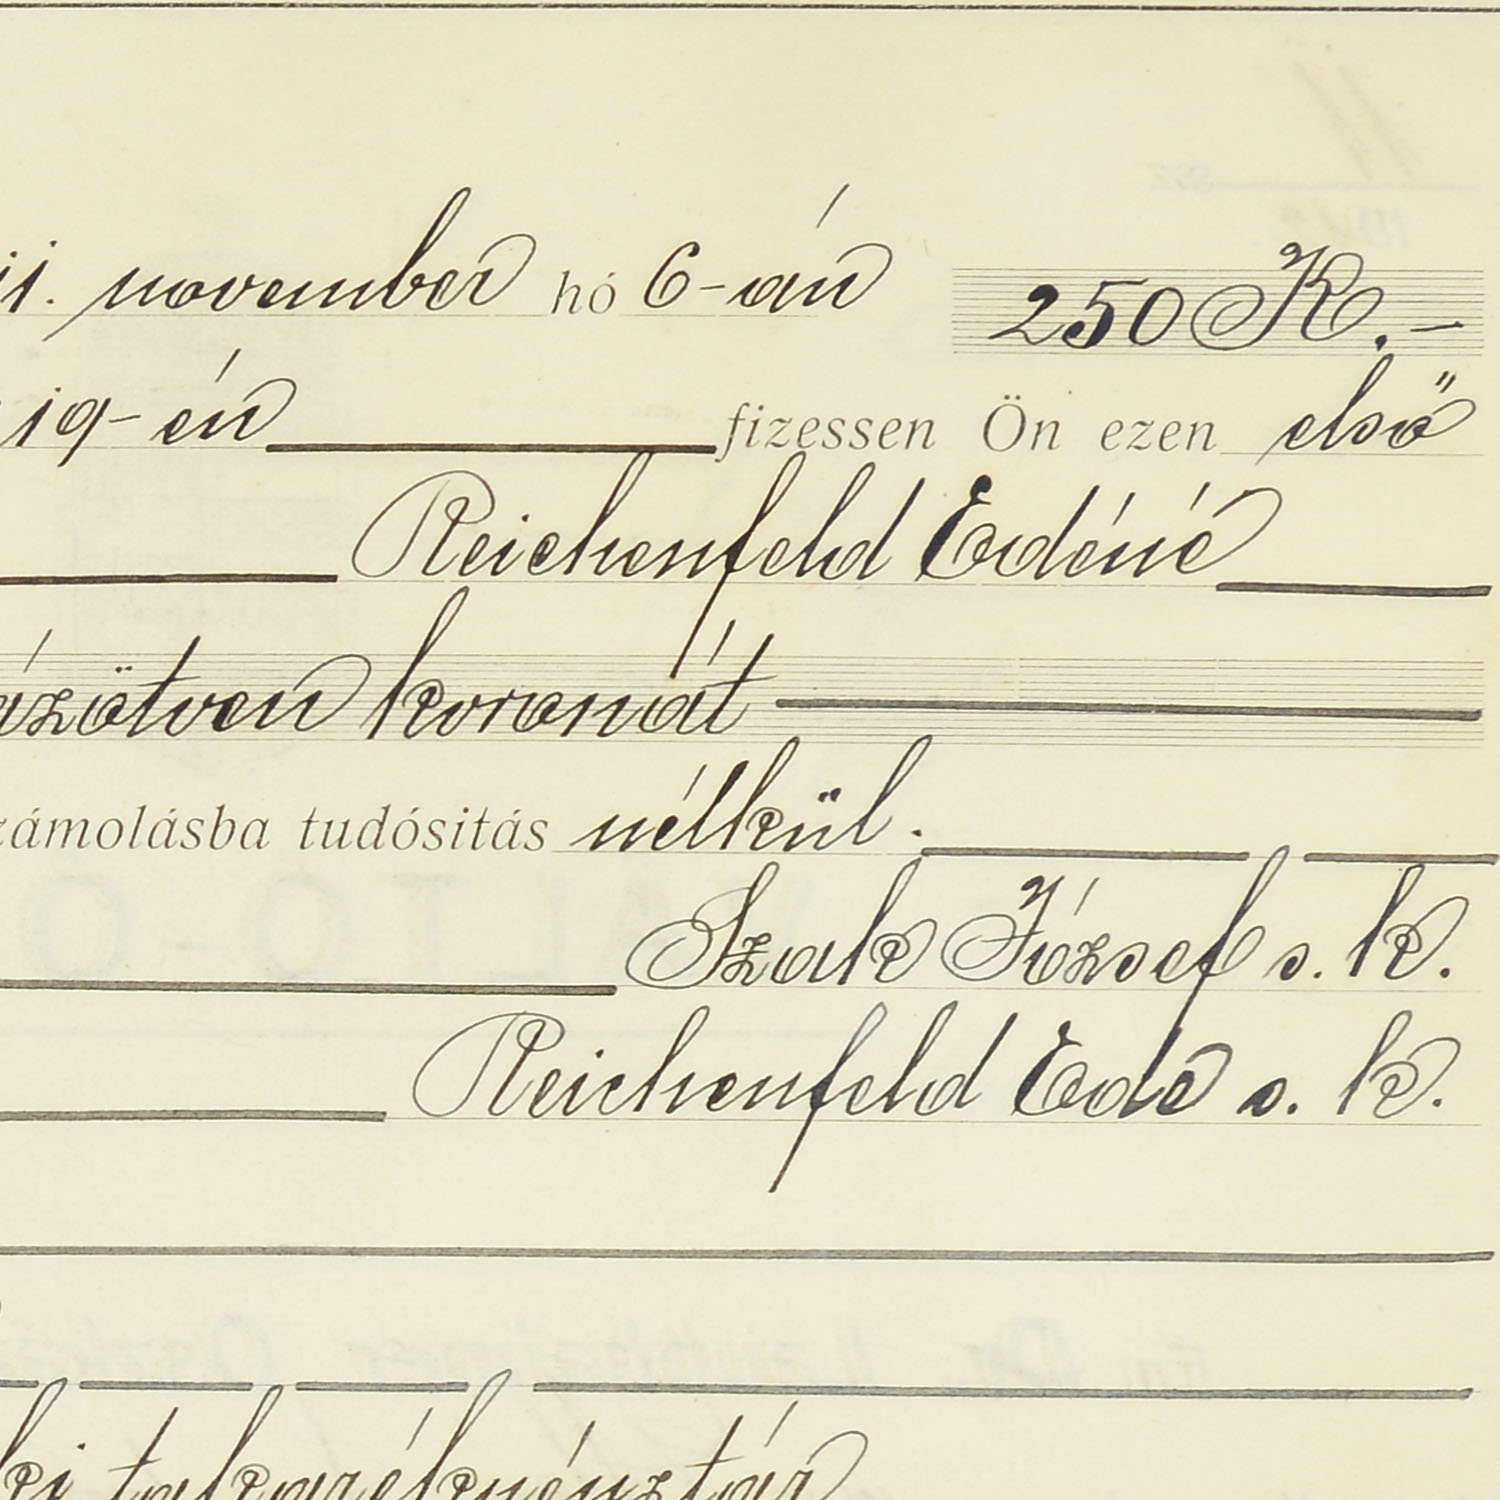 11. november hó 6-án 250 K.-
19-én fizessen Ön ezen első
Reichenfeld Edéné
ázötven koronát
zámolásba tudósitás nélkül.
Szak József s. k.
Reichenfeld Ede s. k.
ki takarékpénztár